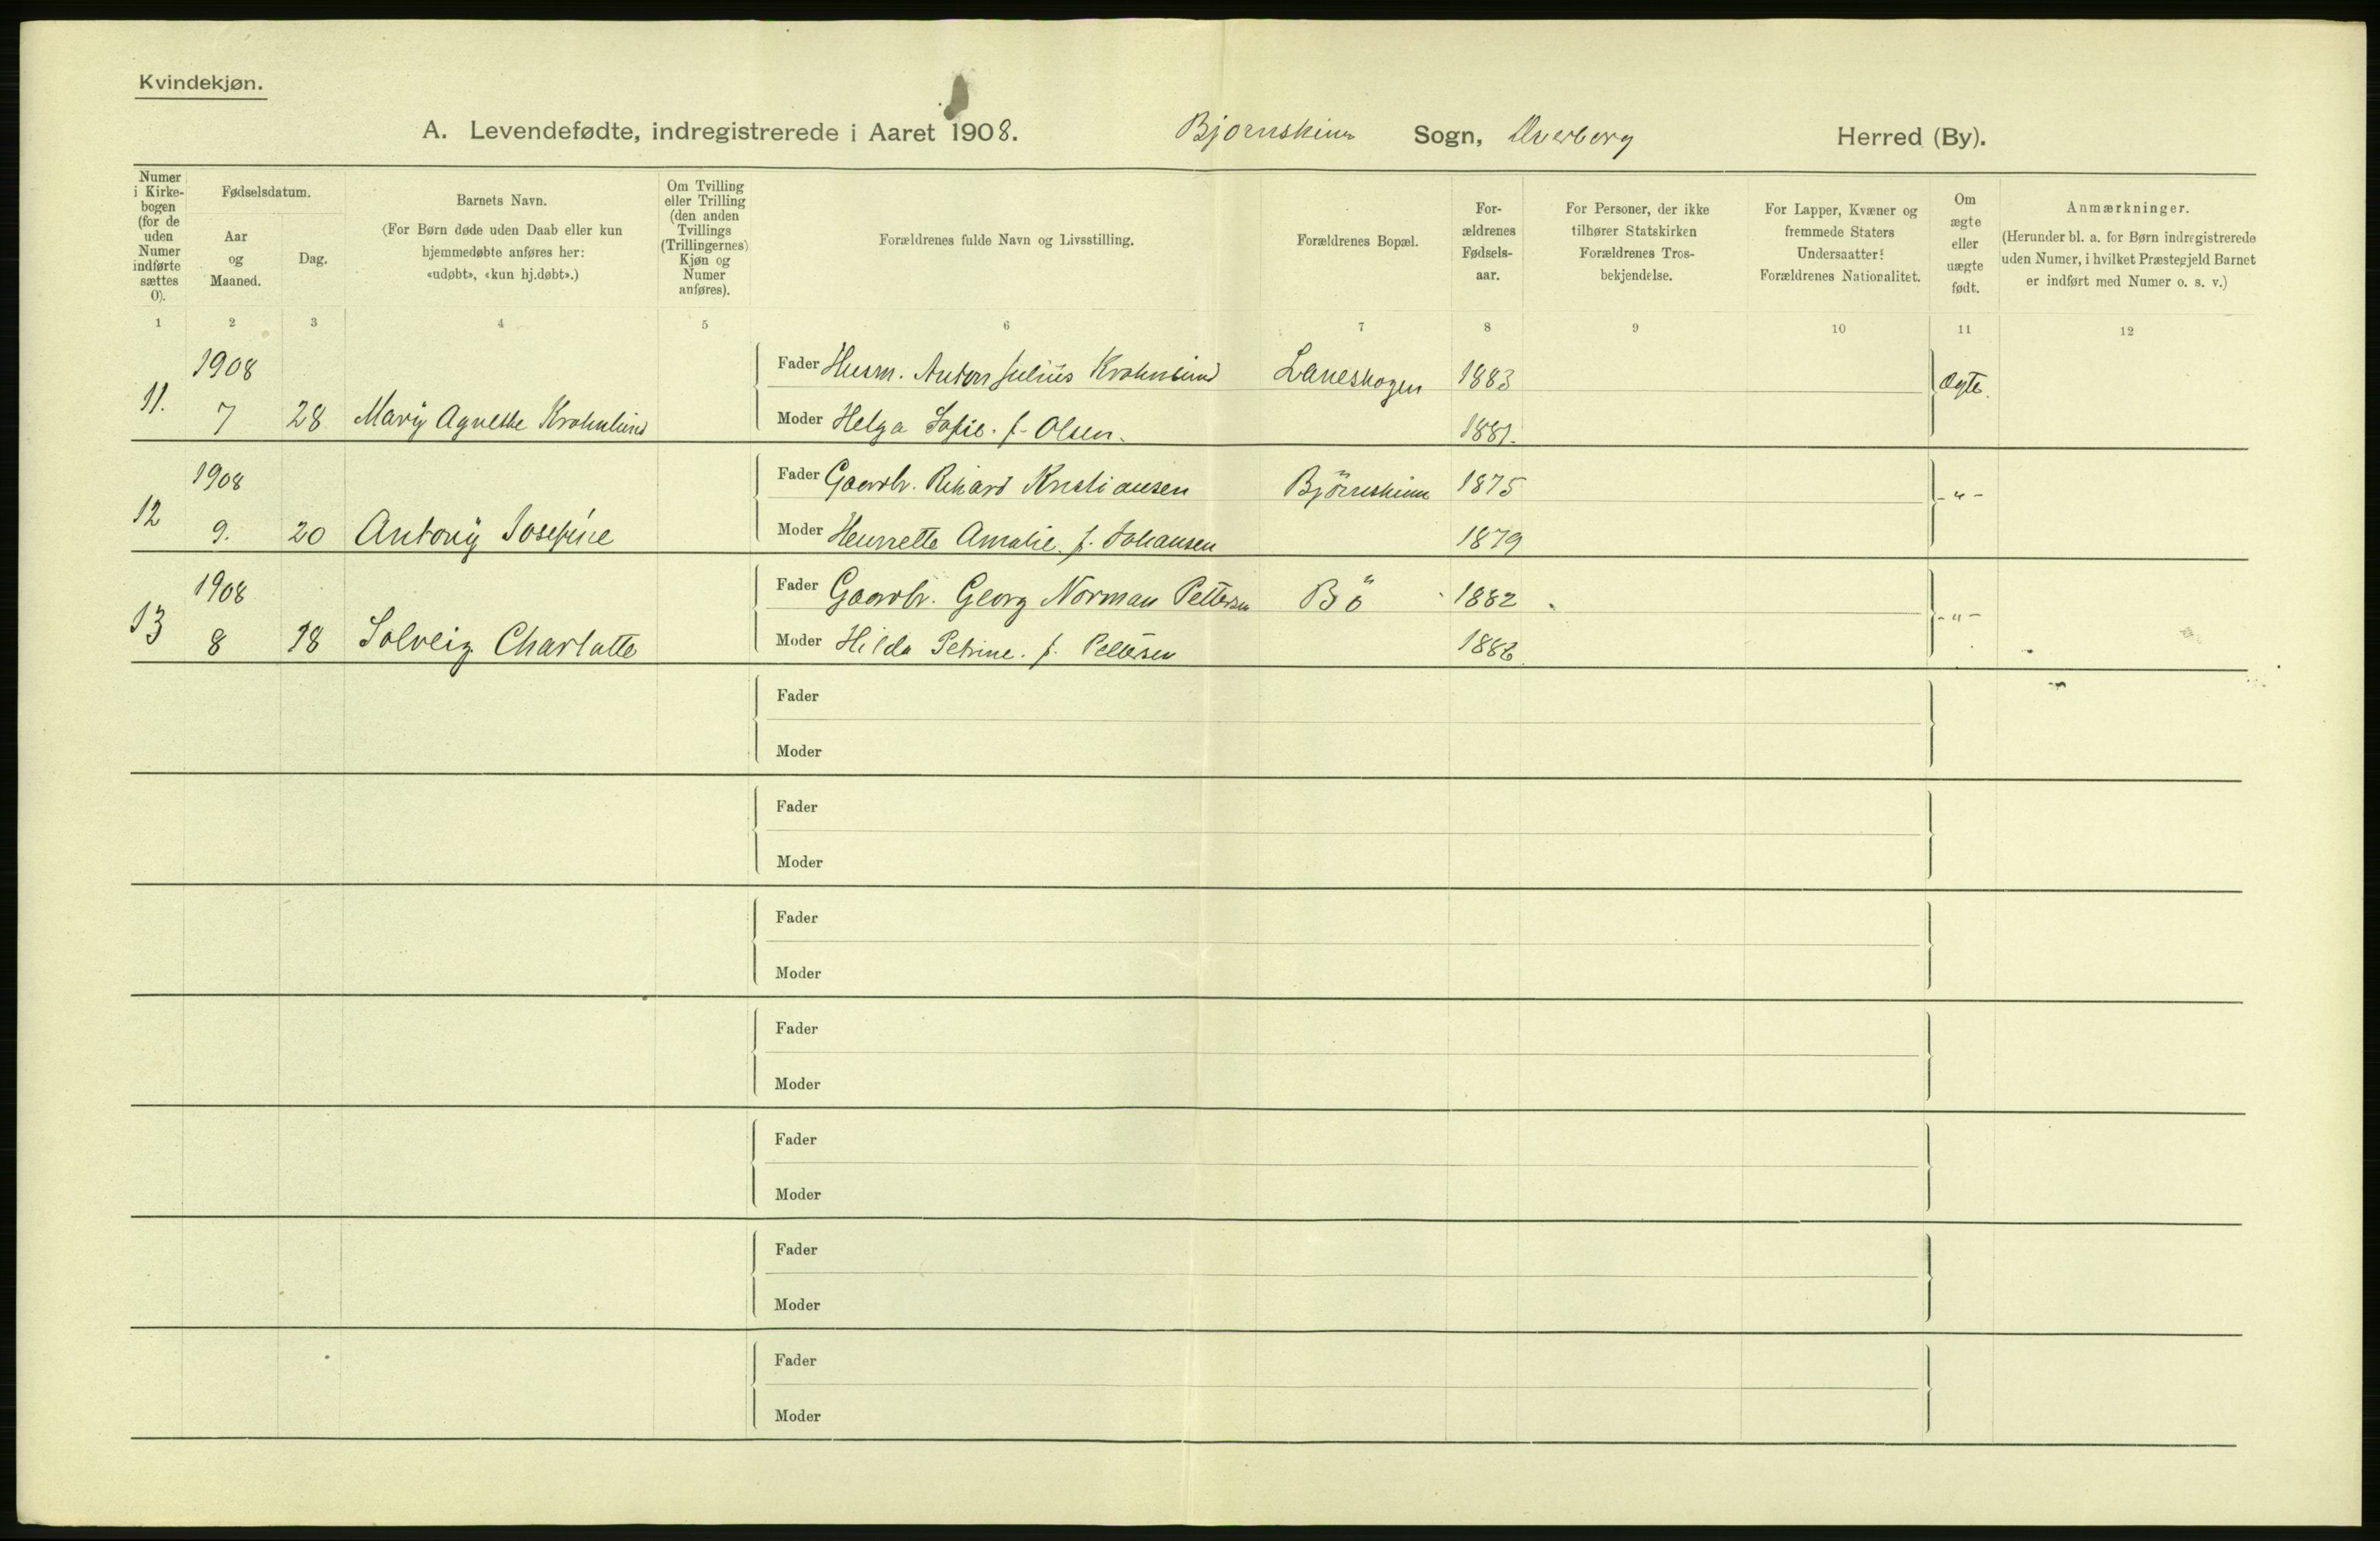 Kvindekjøn.
A. Levendefødte, indregistrerede i Aaret 1908. Bjørnskinn Sogn, Dverberg Herred (By).
Numer i Kirkebogen (for de uden Numer indførte sættes 0).
Fødselsdatum.
Aar og Maaned.
Dag.
Barnets Navn.
(For Børn døde uden Daab eller kun
hjemmedøbte anføres her:
«udøbt», «kun hj.døbt».)
Om Tvilling
eller Trilling
(den anden
Tvillings
(Trillingernes)
Kjøn og
Numer
anføres).
Forældrenes fulde Navn og Livsstilling.
Forældrenes Bopæl.
For-
ældrenes
Fødsels-
aar.
For Personer, der ikke
tilhører Statskirken
Forældrenes Tros-
bekjendelse.
For Lapper, Kvæner og
fremmede Staters
Undersaatter:
Forældrenes Nationalitet.
Om
ægte
eller
uægte
født.
Anmærkninger.
(Herunder bl. a. for Børn indregistrerede
uden Numer, i hvilket Præstegjeld Barnet
er indført med Numer o. s. v.)
1 2 3 4 5 6 7 8 9 10 11 12
1908 Fader Husm. Anton Julius Krohnlund Laneskogen 1883 Ægte.
11. 7 28 Mariy Agnethe Krohnlund Moder Helga Sofie. f. Olsen. 1881.
1908 Fader Gaardbr. Rikard Kristiansen Bjørnskinn 1875 - " -
12 9. 20 Antony Josefine Moder Henrette Amalie. f. Johansen 1879
1908 Fader Gaardbr. Georg Norman Pettersen Bö 1882 - " -
13 8 18 Solveig Charlotte Moder Hilda Petrine. f. Pettersen 1886
Fader
Moder
Fader
Moder
Fader
Moder
Fader
Moder
Fader
Moder
Fader
Moder
Fader
Moder